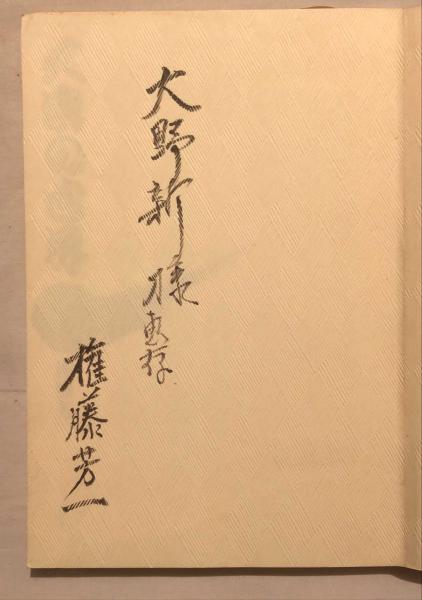 大野新様恵存
権藤芳一